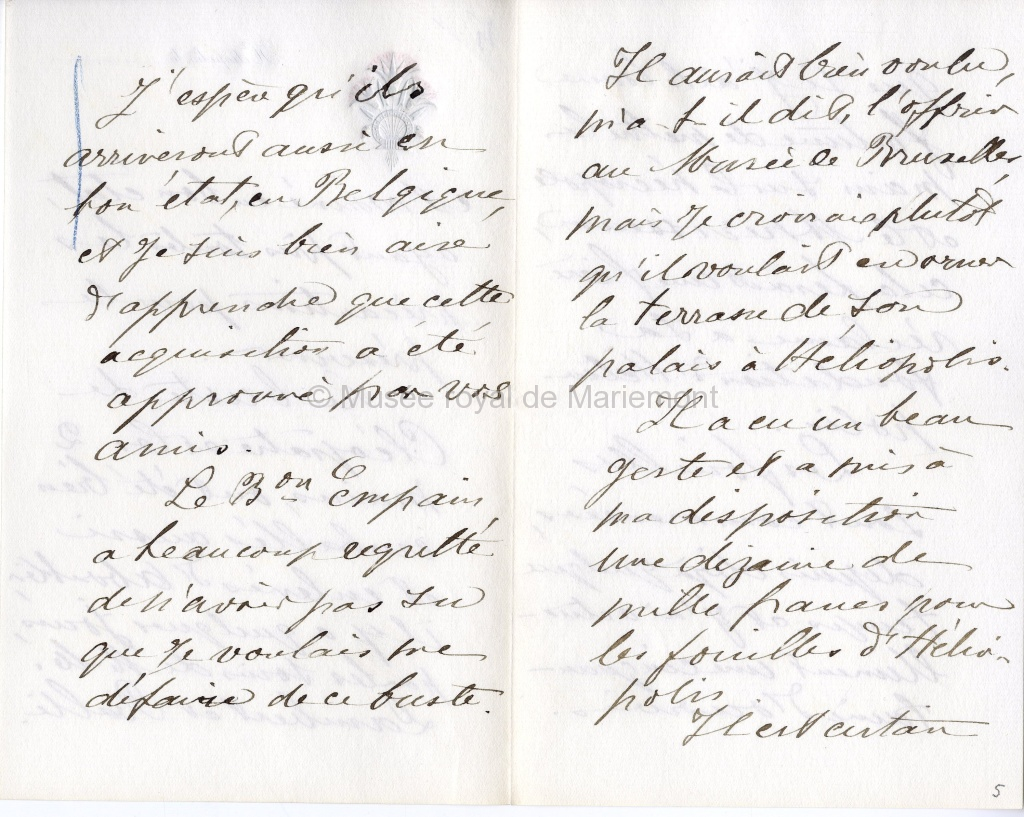 J'espère qu'ils
arriveront aussi en
bon état, en Belgique,
et je suis bien aise
d'apprendre que cette
acquisition a été
approuvé par vos
amis.
Le Bon Empain,
a beaucoup regretté
de n'avoir pas su
que je voulais me
défaire de ce buste.
Il aurait bien voulu,
m'a t il dit, l'offrir
au Musée de Bruxelles,
mais je croirais plutôt
qu'il voulait en orner
la terrasse de son
palais à Héliopolis.
Il a eu un beau
geste et a mis à
ma disposition
une dizaine de
mille francs pour
les fouilles d'Hélio-
polis
Il est certain
5
© Musée royal de Mariemont